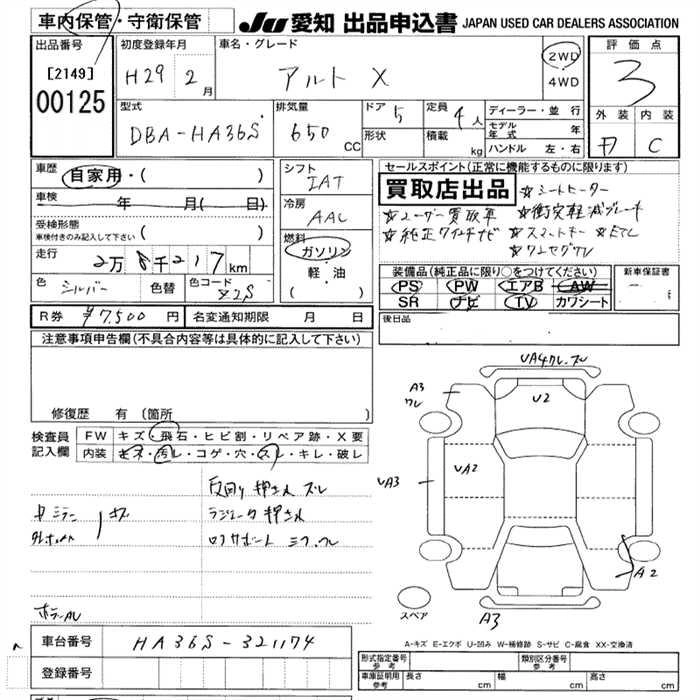 車内保管・守衛保管
JU 愛知 出品申込書 JAPAN USED CAR DEALERS ASSOCIATION
出品番号
[2149]
00125
初度登録年月
H29 2月
車名・グレード
アルト X
2WD
4WD
評価点
3
型式
DBA-HA36S
排気量
650 cc
ドア 5
形状
定員 4人
積載 kg
ディーラー・並行
モデル年式 年
ハンドル 左・右
外装 内装
C
車歴
自家用・( )
車検 年 月( 日)
受検形態
車検付きのみ記入して下さい ( )
走行
2万8千217km
色 シルバー 色替 色コード Z2S
シフト
IAT
冷房
AAC
燃料
ガソリン
軽・油
( )
セールスポイント(正常に機能するものに限ります)
買取店出品
☆シートヒーター
☆ユーザー買取車 ☆衝突軽減ブレーキ
☆純正ワイドナビ ☆スマートキー ☆ETC
☆ワンセグTV
装備品(純正品に限り○をつけてください)
PS PW エアB AW
SR ナビ TV カワシート
新車保証書
R券 ¥7,500円 名変通知期限 月 日
後日品
注意事項申告欄(不具合内容等は具体的に記入して下さい)
修復歴 有(箇所 )
検査員記入欄
FW キズ・飛石・ヒビ割・リペア跡・X要
内装 キズ・汚レ・コゲ・穴・スレ・キレ・破レ
反回り 押され ズレ
ラジエータ 押され
中ミラー キズ
VA4 ワレ、ズレ
A3
ワレ
U2
VA3
VA2
A2
A3
スペア
A-キズ E-エクボ U-凹み W-補修跡 S-サビ C-腐食 XX-交換済
車台番号 HA36S-321174
登録番号
形式指定番号 参考
類別区分番号 参考
車庫証明用 参考 長さ cm 幅 cm 高さ cm